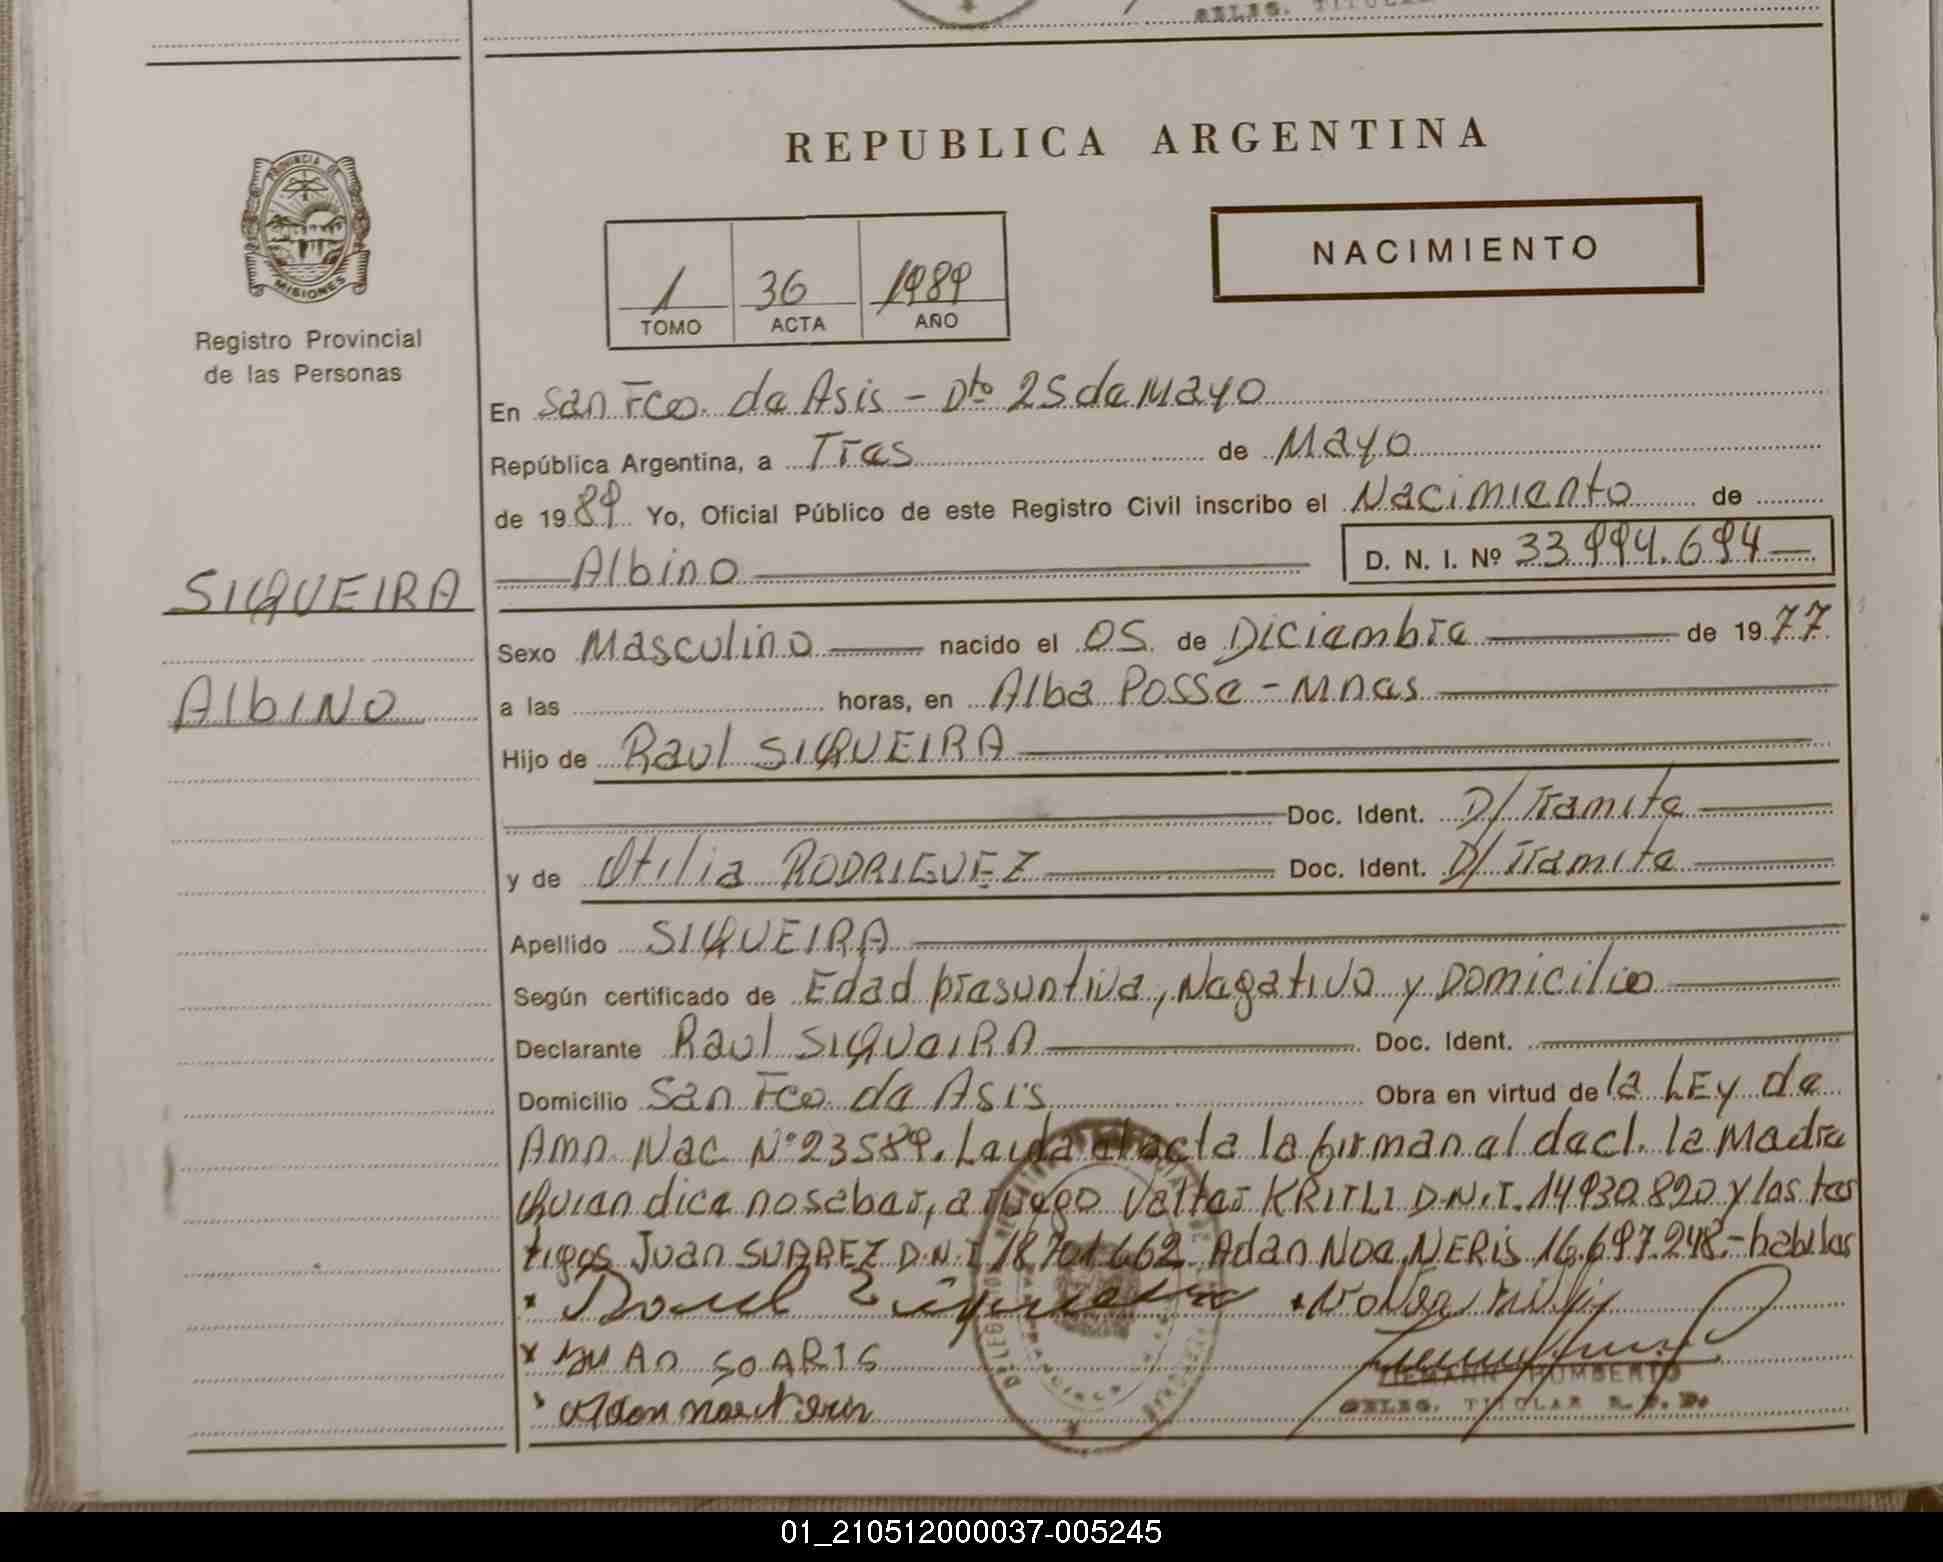 DELEG. TITULAR
REPUBLICA ARGENTINA
PROVINCIA DE
MISIONES
Registro Provincial
de las Personas
NACIMIENTO
1 36 1989
TOMO ACTA AÑO
En San Fco. de Asis - Dto 25 de Mayo
República Argentina, a Tres de Mayo
de 1989 Yo, Oficial Público de este Registro Civil inscribo el Nacimiento de
Albino D. N. I. Nº 33.994.694
SIQUEIRA
AlbINO
Sexo Masculino nacido el 05 de Diciembre de 1977
a las horas, en Alba Posse - Mnes
Hijo de Raul SIQUEIRA
Doc. Ident. D/ Tramite
y de Otilia RODRIGUEZ Doc. Ident. D/ Tramite
Apellido SIQUEIRA
Según certificado de Edad presuntiva, Negativo y Domicilio
Declarante Raul SIQUeIRA Doc. Ident.
Domicilio San Fco de Asis Obra en virtud de la LEy de
Amn Nac Nº 23589. Leida el acta la firman el decl. la Madre
Quien dice no seber, a ruego Valter KRITLI D.N.I. 14.930.820 y los tes
tigos Juan SUAREZ D.N.I 18.701.662 Adan Noe NERIS 16.697.248.- habiles
JUAN SOARIS
HUMBERTO
DELEG. TITULAR R.P.P.
01_210512000037-005245